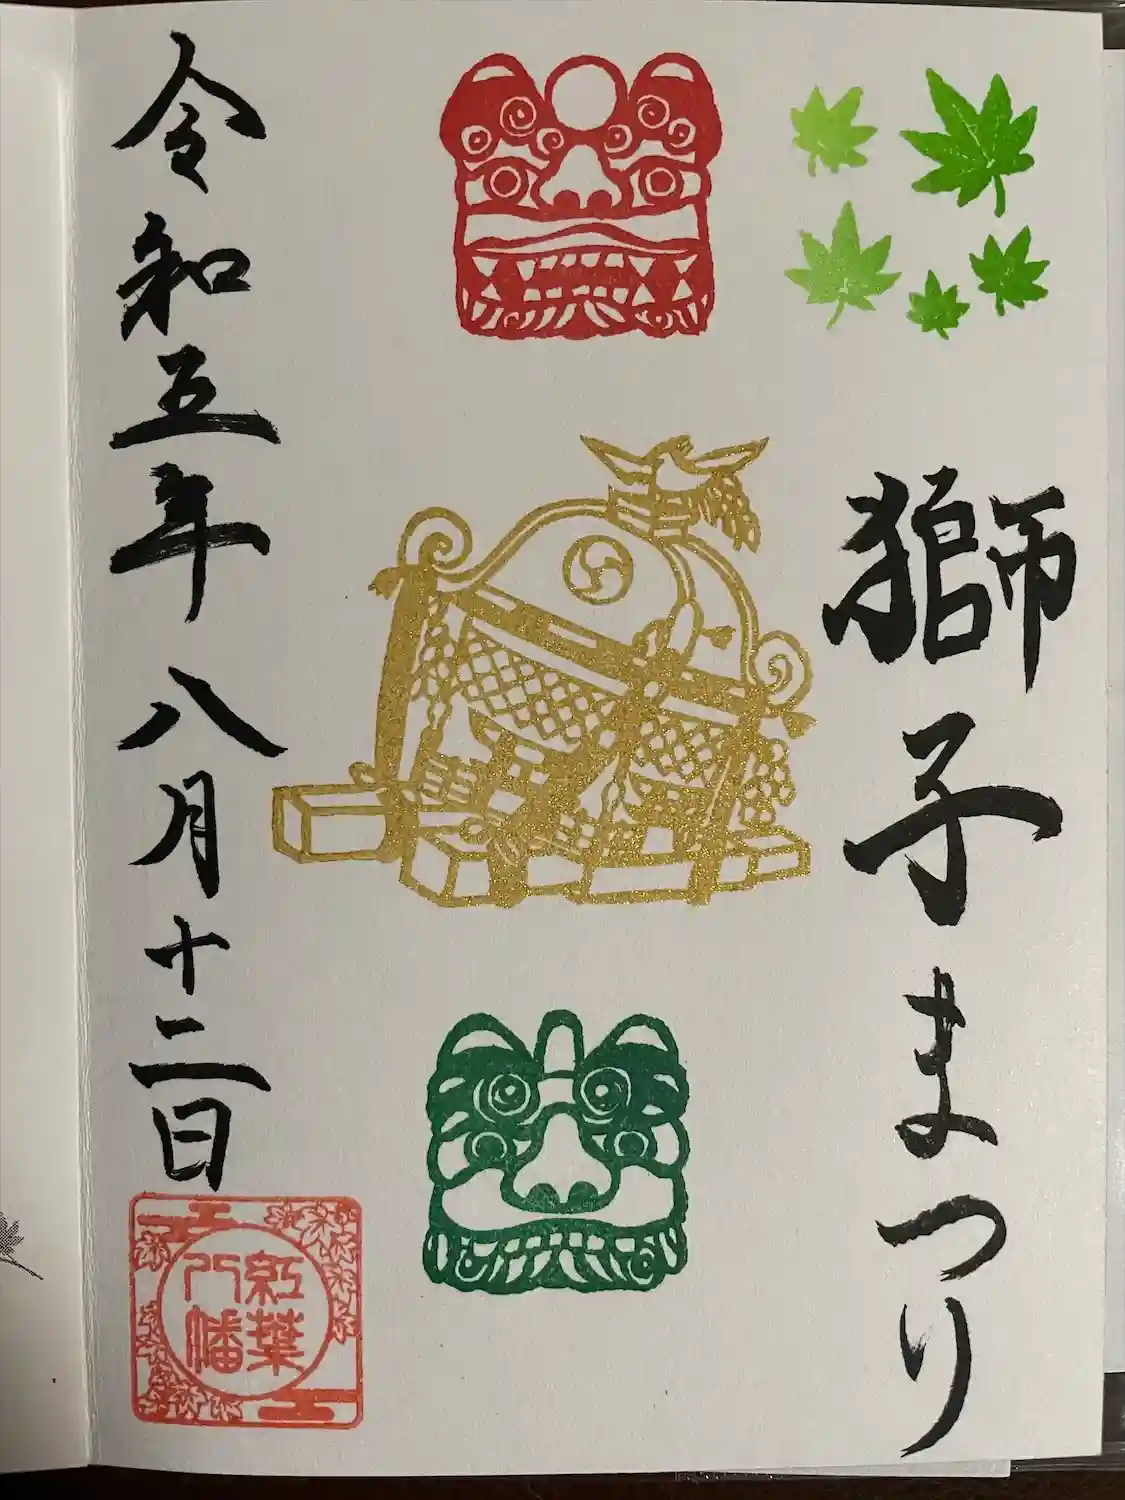 獅子まつり
令和五年八月十二日
紅葉
八幡